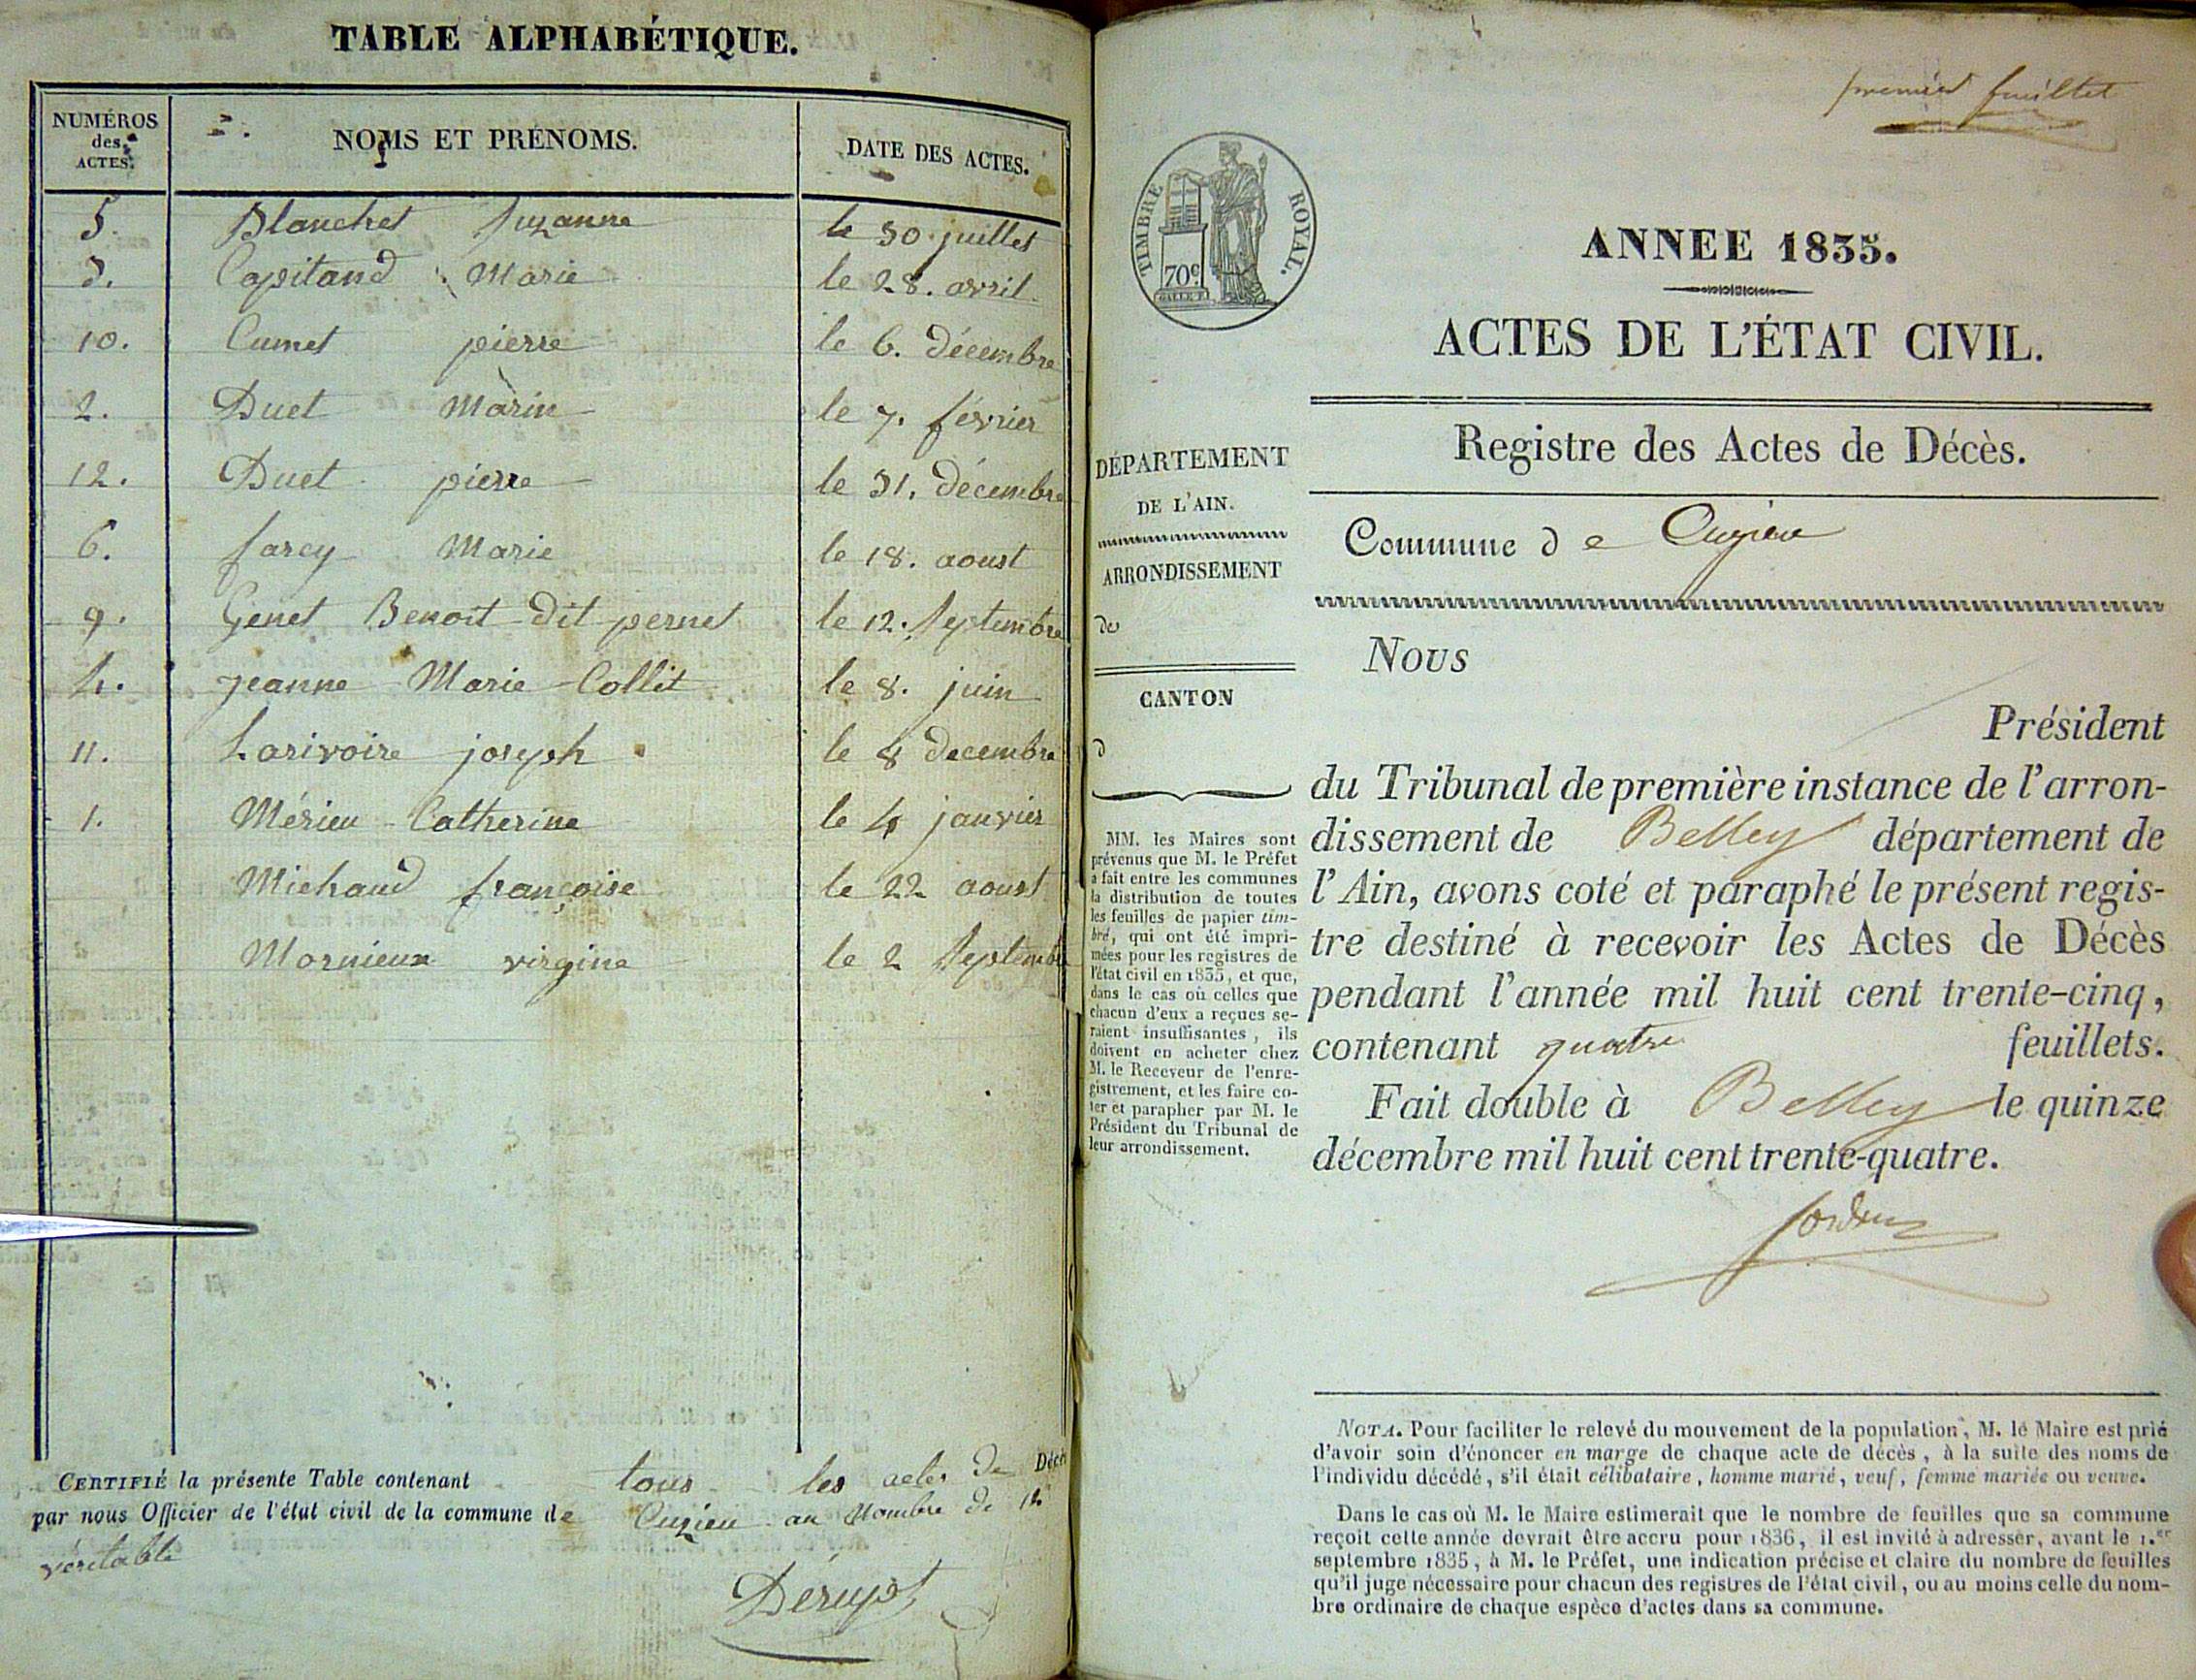 TABLE ALPHABÉTIQUE.
NUMÉROS des ACTES. NOMS ET PRÉNOMS. DATE DES ACTES.
5. Blanchet Suzanne le 30 juillet
3. Capitand Marie le 28. avril
10. Cumet pierre le 6. décembre
2. Duet Marin le 7. février
12. Duet pierre le 31. décembre
6. farcy Marie le 18. aoust
9. Genet Benoit dit pernet le 12. Septembre
4. jeanne Marie Collit le 8. juin
11. Larivoire joseph le 8 decembre
1. Mérieu Catherine le 4 janvier
Michaud françoise le 22 aoust
Mornieux virgine le 2 Septembre
CERTIFIÉ la présente Table contenant tous les actes de Décès
par nous Officier de l'état civil de la commune de Cuzieu au Nombre de 12
véritable
Dérupt
premier feuillet
TIMBRE ROYAL.
70c
GALLE F.
ANNEE 1835.
ACTES DE L'ÉTAT CIVIL.
Registre des Actes de Décès.
Commune de Cuzieu
DÉPARTEMENT
DE L'AIN.
ARRONDISSEMENT
de
CANTON
d
MM. les Maires sont
prévenus que M. le Préfet
a fait entre les communes
la distribution de toutes
les feuilles de papier tim-
bré, qui ont été impri-
mées pour les registres de
l'état civil en 1835, et que,
dans le cas où celles que
chacun d'eux a reçues se-
raient insuffisantes, ils
doivent en acheter chez
M. le Receveur de l'enre-
gistrement, et les faire co-
ter et parapher par M. le
Président du Tribunal de
leur arrondissement.
Nous
Président
du Tribunal de première instance de l'arron-
dissement de Belley département de
l'Ain, avons coté et paraphé le présent regis-
tre destiné à recevoir les Actes de Décès
pendant l'année mil huit cent trente-cinq,
contenant quatre feuillets.
Fait double à Belley le quinze
décembre mil huit cent trente-quatre.
NOTA. Pour faciliter le relevé du mouvement de la population, M. le Maire est prié
d'avoir soin d'énoncer en marge de chaque acte de décès, à la suite des noms de
l'individu décédé, s'il était célibataire, homme marié, veuf, femme mariée ou veuve.
Dans le cas où M. le Maire estimerait que le nombre de feuilles que sa commune
reçoit cette année devrait être accru pour 1836, il est invité à adresser, avant le 1.er
septembre 1835, à M. le Préfet, une indication précise et claire du nombre de feuilles
qu'il juge nécessaire pour chacun des registres de l'état civil, ou au moins celle du nom-
bre ordinaire de chaque espèce d'actes dans sa commune.